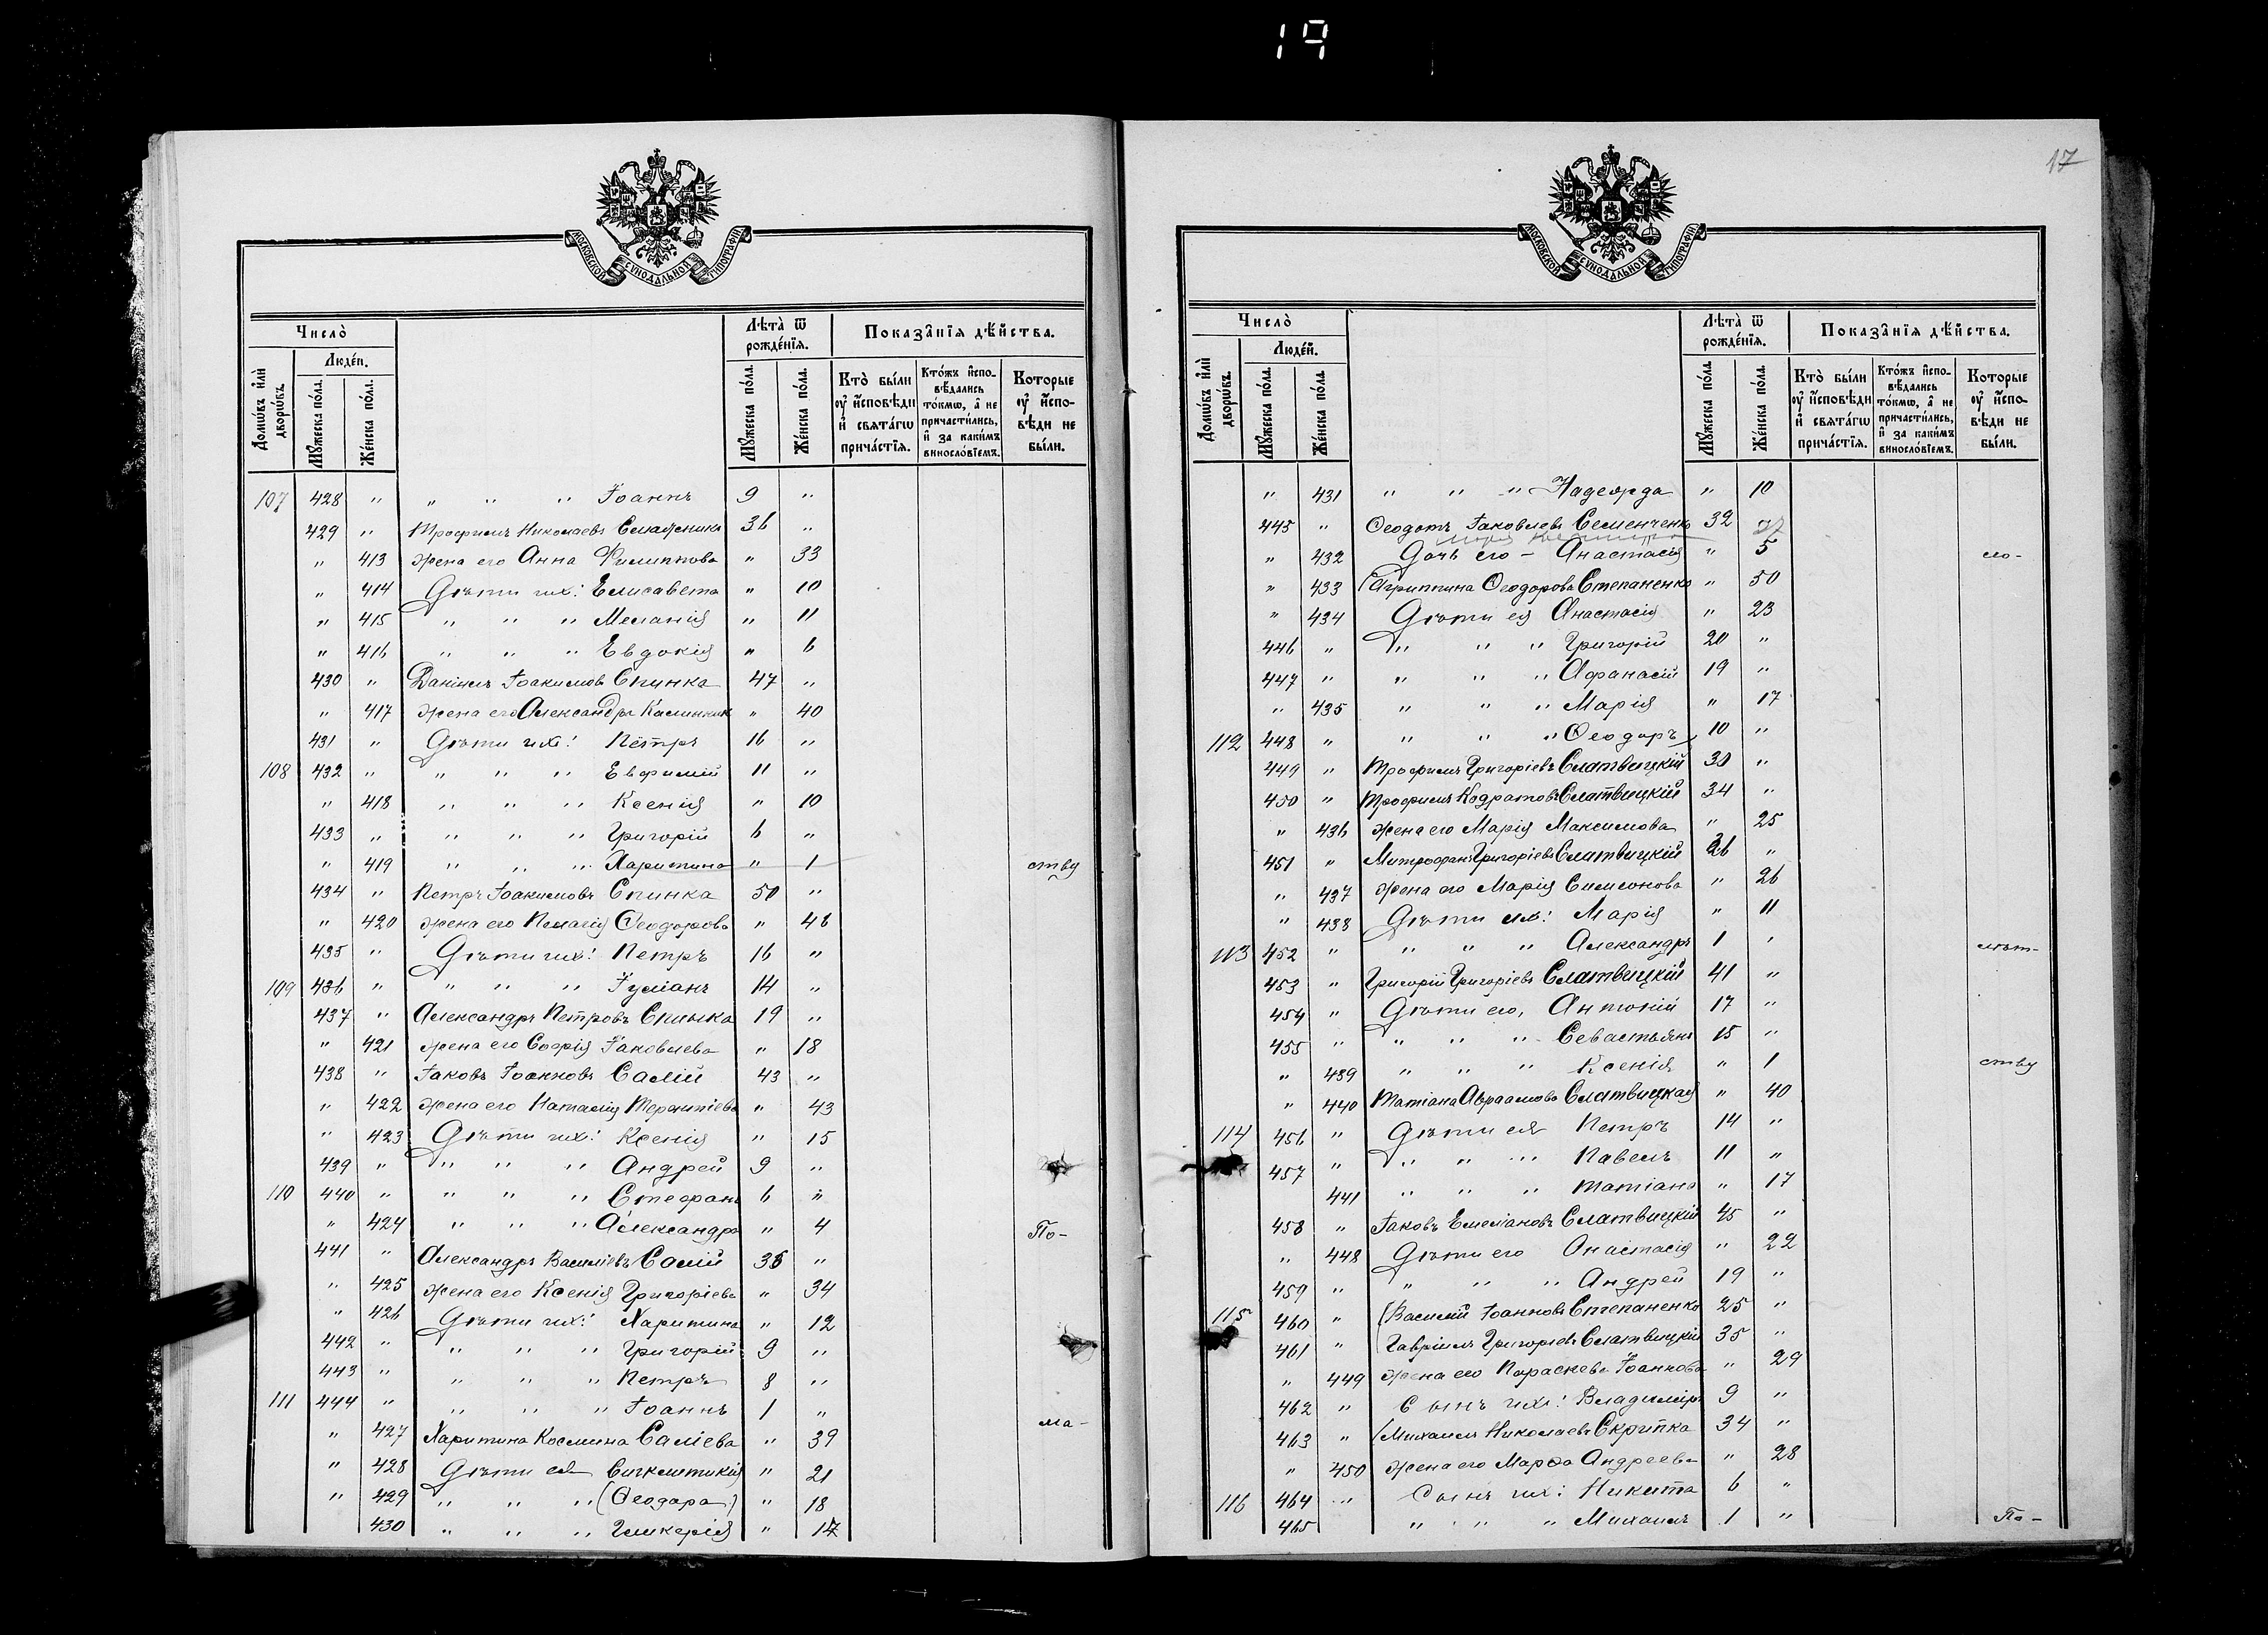 19
МОСКОВСКОЙ СУНОДАЛЬНОЙ ТИПОГРАФІИ
Число̀
Людей.
Лѣта̀ ѿ рождéнїѧ.
Показа̑нїѧ дѣ́йства.
Домѡ́въ и҆лѝ дворѡ́въ.
Мꙋ́жеска по́ла.
Же́нска по́ла.
Мꙋ́жеска по́ла.
Же́нска по́ла.
Кто̀ бы́ли ᲂу҆ и҆сповѣди и҆ свѧта́гѡ прича́стїѧ.
Кто́жъ и҆сповѣ́дались то́кмѡ, а҆ не причасти́лись, и҆ за каки́мъ винослóвїемъ.
Которые ᲂу҆ и҆сповѣди не бы́ли.
107 428 " " " " Іоаннъ 9 "
429 " Трофимъ Николаевъ 36 "
" 413 жена его Анна Филиппова " 33
" 414 Дѣти ихъ: Елисавета " 10
" 415 " " " Меланія " 11
" 416 " " " Евдокія " 6
430 " Даніилъ Іоакимовъ Спинка 47 "
" 417 жена его Александра " 40
431 " Дѣти ихъ: Петръ 16 "
108 432 " " " " Евфимій 11 "
" 418 " " " Ксенія " 10
433 " " " " Григорій 6 "
" 419 " " " Харитина " 1 ству
434 " Петръ Іоакимовъ Спинка 50 "
" 420 жена его Пелагія Ѳеодорова " 46
435 " Дѣти ихъ: Петръ 16 "
109 436 " " " " Іуліанъ 14 "
437 " Александръ Петровъ Спинка 19 "
" 421 жена его Софія Іаковлева " 18
438 " Іаковъ Іоанновъ Салій 43 "
" 422 жена его Наталія Терентіева " 43
" 423 Дѣти ихъ: Ксенія " 15
439 " " " " Андрей 9 "
110 440 " " " " Стефанъ 6 "
" 424 " " " Александра " 4 По-
441 " Александръ Василіевъ Салій 35 "
" 425 жена его Ксенія Григоріева " 34
" 426 Дѣти ихъ: Харитина " 12
442 " " " " Григорій 9 "
443 " " " " Петръ 8 "
111 444 " " " " Іоаннъ 1 " ма-
" 427 Харитина Космина Саліева " 39
" 428 Дѣти ея Синклитикія " 21
" 429 " " " (Ѳеодора) " 18
430 " " " Гликерія " 17
17
МОСКОВСКОЙ СУНОДАЛЬНОЙ ТИПОГРАФІИ
Число̀
Людей.
Лѣта̀ ѿ рождéнїѧ.
Показа̑нїѧ дѣ́йства.
Домѡ́въ и҆лѝ дворѡ́въ.
Мꙋ́жеска по́ла.
Же́нска по́ла.
Мꙋ́жеска по́ла.
Же́нска по́ла.
Кто̀ бы́ли ᲂу҆ и҆сповѣди и҆ свѧта́гѡ прича́стїѧ.
Кто́жъ и҆сповѣ́дались то́кмѡ, а҆ не причасти́лись, и҆ за каки́мъ винослóвїемъ.
Которые ᲂу҆ и҆сповѣди не бы́ли.
" 431 " " " Надежда " 10
445 " Ѳеодотъ Іаковлевъ Семенченко 32
" 432 Дочь его - Анастасія " 5 ло-
" 433 (Агриппина Ѳеодорова Степаненко " 50
" 434 Дѣти ея Анастасія " 23
446 " " " " Григорій 20 "
447 " " " " Афанасій 19 "
" 435 " " " Марія " 17
112 448 " " " " Ѳеодоръ 10 "
449 " Трофимъ Григоріевъ Слатвицкій 30 "
450 " Трофимъ Кодратовъ Слатвицкій 34 "
" 436 жена его Марія Максимова " 25
451 " Митрофанъ Григоріевъ Слатвицкій 26 "
" 437 жена его Марія Симеонова " 26
" 438 Дѣти ихъ: Марія " 11
113 452 " " " " Александръ 1 " лѣт-
453 " Григорій Григоріевъ Слатвицкій 41 "
454 " Дѣти его, Антоній 17 "
455 " " " " Севастьянъ 15 "
" 439 " " " Ксенія " 1 ству
" 440 Татіана Авраамова Слатвицкая " 40
114 456 " Дѣти ея Петръ 14 "
457 " " " " Павелъ 11 "
441 " " " Татіана " 17
458 " Іаковъ Емеліановъ Слатвицкій 45 "
" 448 Дѣти его Анастасія " 22
459 " " " " Андрей 19 "
115 460 " (Василій Іоанновъ Степаненко 25 "
461 " Гавріилъ Григоріевъ Слатвицкій 35 "
" 449 жена его Параскева Іоаннова " 29
462 " Сынъ ихъ: Владиміръ 9 "
463 " (Михаилъ Николаевъ Скрипка 34 "
" 450 жена его Марѳа Андреева " 28
116 464 " Сынъ ихъ: Никита 6 "
465 " " " Михаилъ 1 " По-